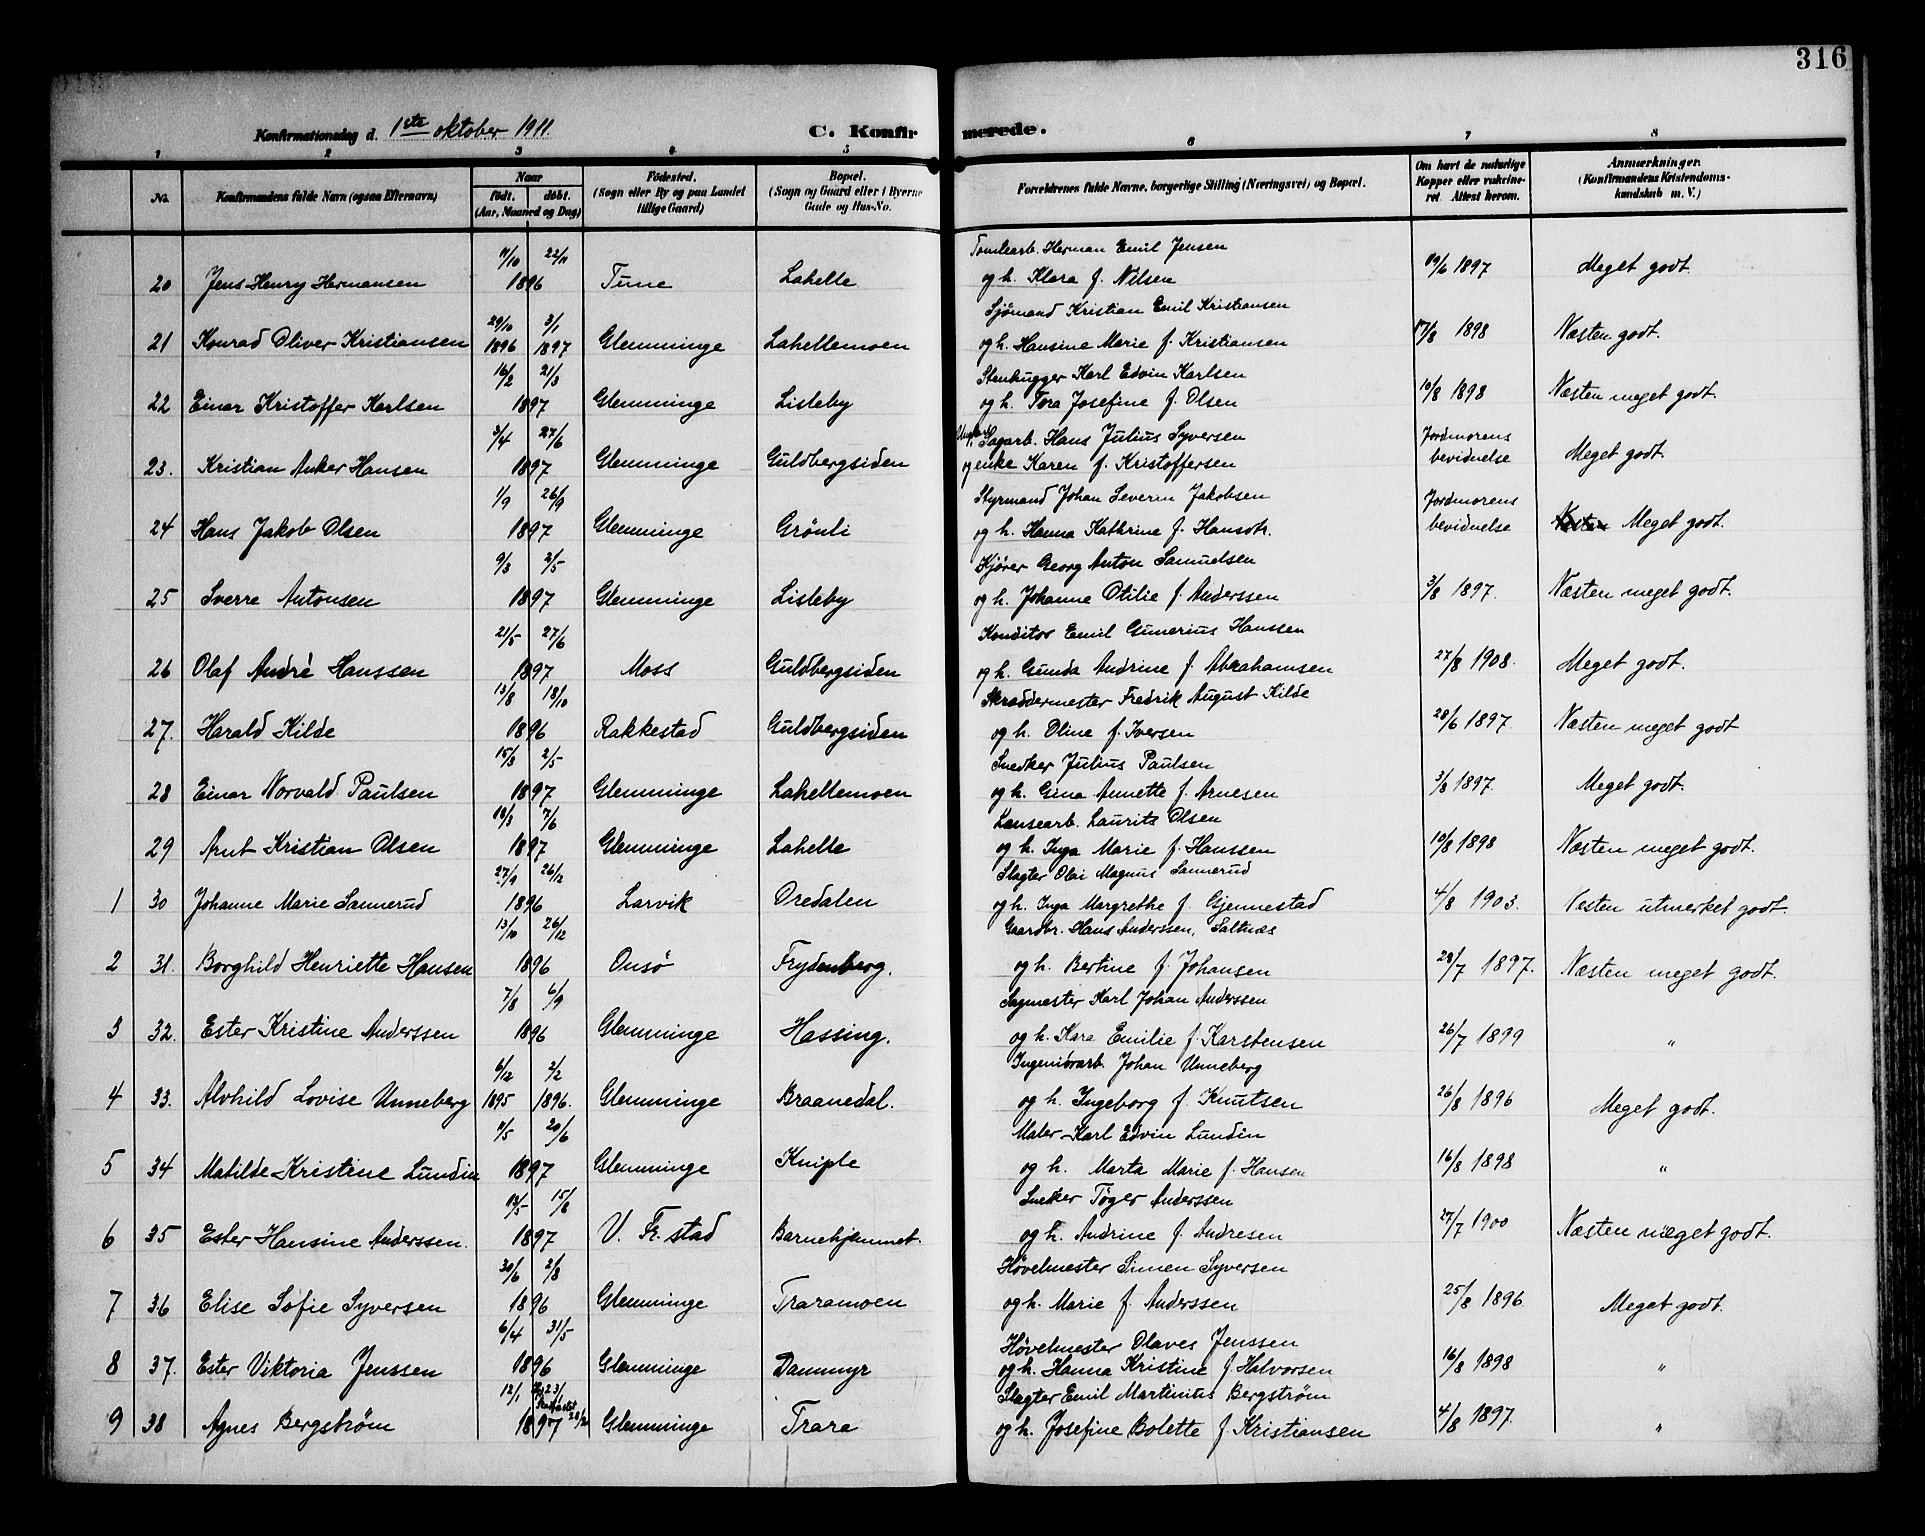 316
Konfirmationsdag d. 1ste oktober 1911. C. Konfirmerede.
1 2 3 4 5 6 7 8
No. Konfirmandens fulde Navn (ogsaa Efternavn) Naar født. døbt. (Aar, Maaned og Dag) Fødested. (Sogn eller By og paa Landet tillige Gaard) Bopæl. (Sogn og Gaard eller i Byerne Gade og Hus-No. Forældrenes fulde Navne, borgerlige Stilling (Næringsvei) og Bopæl. Om havt de naturlige Kopper eller vakcineret. Attest herom. Anmærkninger. (Konfirmandens Kristendomskundskab m. V.)
11/10 22/11 Tomtearb. Herman Emil Jensen
20 Jens Henry Hermansen 1896 Tune Lahelle og h. Klara f. Nilsen 19/6 1897 Meget godt.
29/10 3/1 Sjømand Kristian Emil Kristiansen
21 Konrad Oliver Kristiansen 1896 1897 Glemminge Lahellemoen og h. Hansine Marie f. Kristiansen 17/8 1898 Næsten godt.
16/2 21/3 Stenhugger Karl Edvin Karlsen
22 Einar Kristoffer Karlsen 1897 Glemminge Lisleby og h. Tora Josefine f. Olsen 10/8 1898 Næsten meget godt.
3/4 27/6 Sagarb. Hans Julius Syversen Jordmorens
23. Kristian Anker Hansen 1897 Glemminge Guldbergsiden og enke Karen f. Kristoffersen bevidnelse Meget godt.
1/9 26/9 Styrmand Johan Severin Jakobsen Jordmorens
24 Hans Jakob Olsen 1897 Glemminge Grönli og h. Hanna Kathrine f. Hansdtr. bevidnelse Næsten Meget godt.
9/3 2/5 Kjörer Georg Anton Samuelsen
25 Sverre Antonsen 1897 Glemminge Lisleby og h. Johanne Otilie f. Anderssen 3/8 1897. Næsten meget godt.
21/5 27/6 Konditor Emil Gunerius Hanssen
26 Olaf André Hanssen 1897 Moss Guldbergsiden og h. Gunda Andrine f. Abrahamsen 27/8 1908. Meget godt.
13/8 18/10 Skræddermester Fredrik August Kilde
27. Harald Kilde 1896 Rakkestad Guldbergsiden og h. Oline f. Iversen 28/6 1897. Næsten meget godt
15/3 2/5 Snedker Julius Paulsen
28 Einar Norvald Paulsen 1897 Glemminge Lahellemoen og h. Gina Annette f. Arnesen 3/8 1897. Meget godt.
18/3 7/6 Lansearb. Laurits Olsen
29 Arnt Kristian Olsen 1897 Glemminge Lahelle og h. Inga Marie f. Hanssen 10/8 1898 Næsten meget godt.
27/9 26/12 Slagter Olai Magnus Sannerud
1 30 Johanne Marie Sannerud 1896 Larvik Oredalen og h. Inga Margrethe f. Gjennestad 4/8 1903. Næsten utmerket godt.
13/10 26/12 Gaardbr. Hans Anderssen, Saltnæs
2 31. Borghild Henriette Hansen 1896 Onsö Frydenberg. og h. Bertine f. Johansen 28/7 1897. Næsten meget godt.
7/8 6/9 Sagmester Karl Johan Anderssen
3 32. Ester Kristine Anderssen 1896 Glemminge Hassing. og h. Kara Emilie f. Karstensen 26/7 1899 "
6/12 2/2 Ingeniörarb. Johan Unneberg
4 33. Alvhild Lovise Unneberg 1895 1896. Glemminge Braanedal. og h. Ingeborg f. Knutsen 26/8 1896 Meget godt.
11/5 20/6 Maler Karl Edvin Lundin
5 34 Matilde Kristine Lundin 1897 Glemminge Kniple og h. Marta Marie f. Hansen 16/8 1898 "
13/5 15/8 Snekker Töger Anderssen
6 35 Ester Hansine Anderssen. 1897 V. Fr. stad Barnehjemmet. og h. Andrine f. Andresen 27/7 1900 Næsten meget godt.
30/6 2/8 Høvelmester Simen Syversen
7 36 Elise Sofie Syversen 1896 Glemminge Traramoen og h. Marie f. Anderssen 25/8 1896. Meget godt.
6/4 31/5 Høvelmester Olaves Jenssen
8 37. Ester Viktoria Jenssen 1896 Glemminge Dammyr og h. Hanna Kristine f. Halvorsen 16/8 1898 "
12/1 23/1 Slagter Emil Martinius Bergstrøm
9 38 Agnes Bergstrøm 1897 Glemminge Trara og h. Josefine Bolette f. Kristiansen 4/8 1897. "